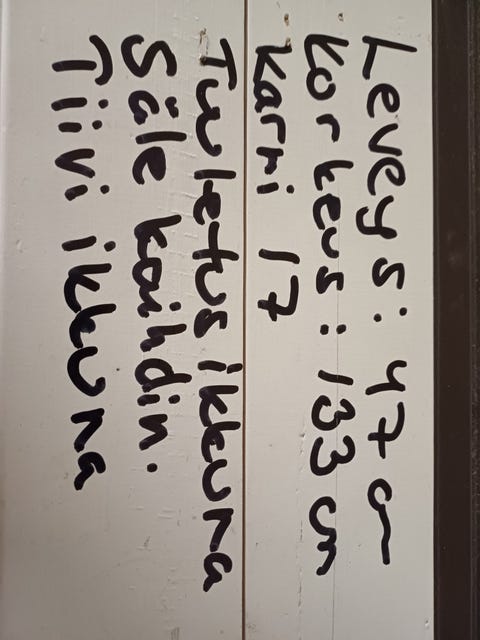 Leveys: 47 cm
Korkeus: 133 cm
Karmi 17
Tuuletus ikkuna
Säle kaihdin.
Tiivi ikkuna